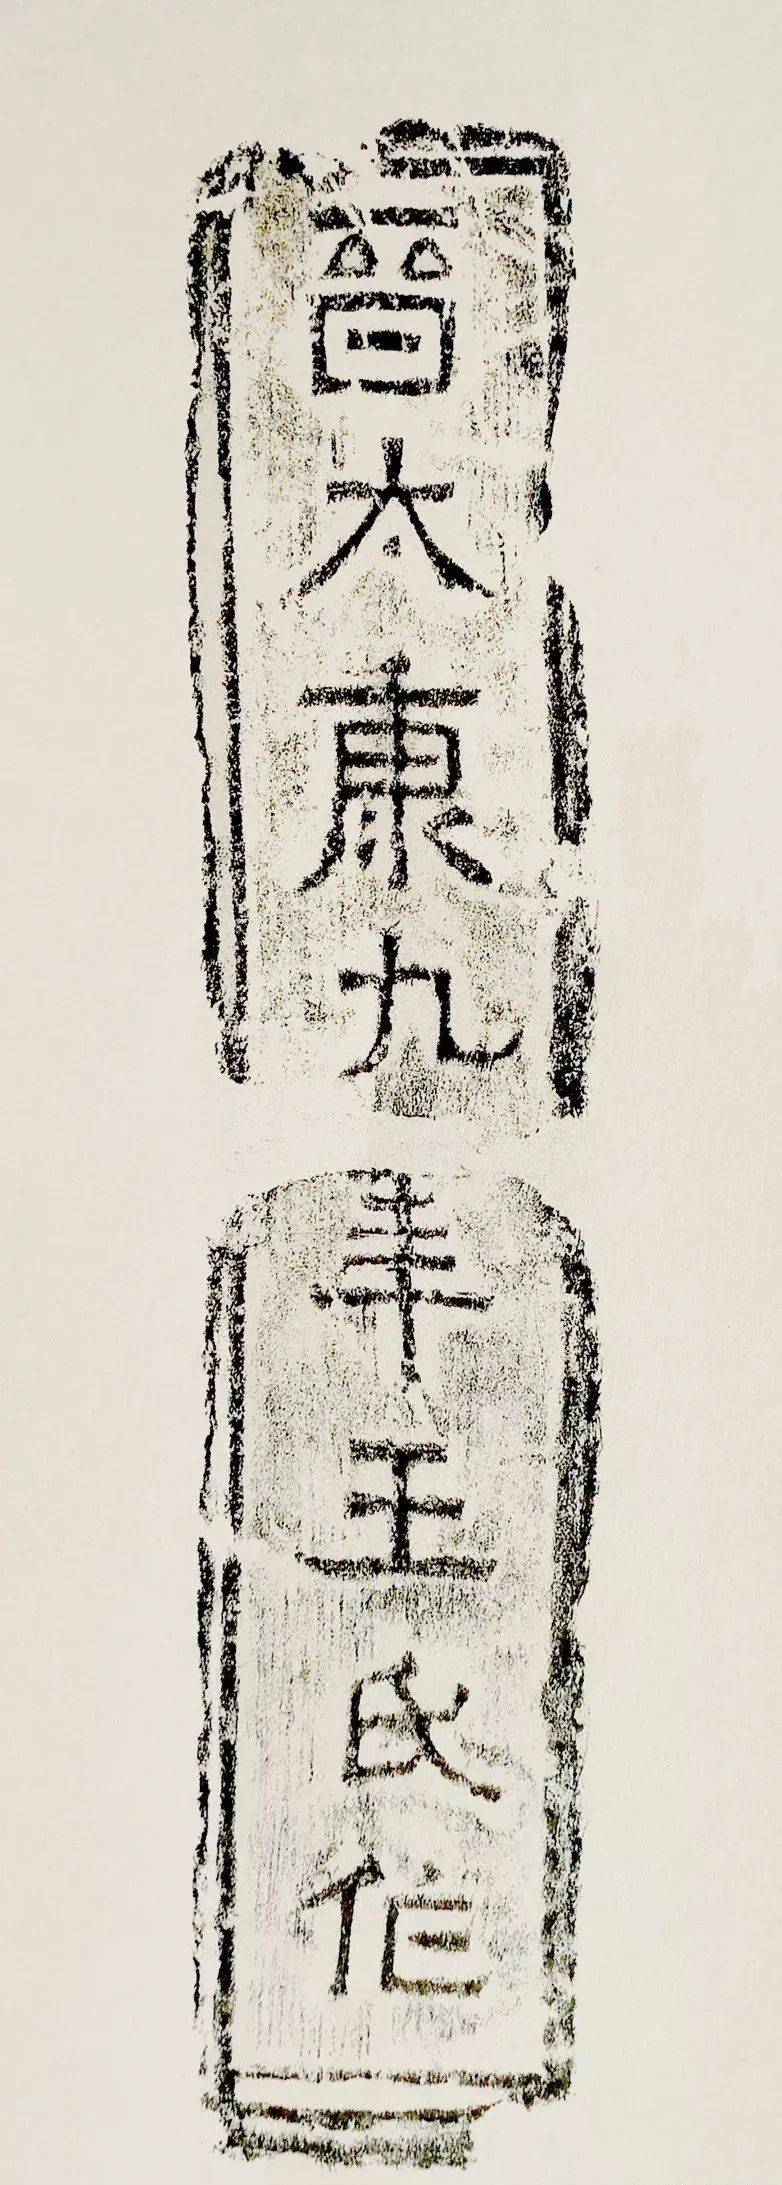 晉太康九年王氏作